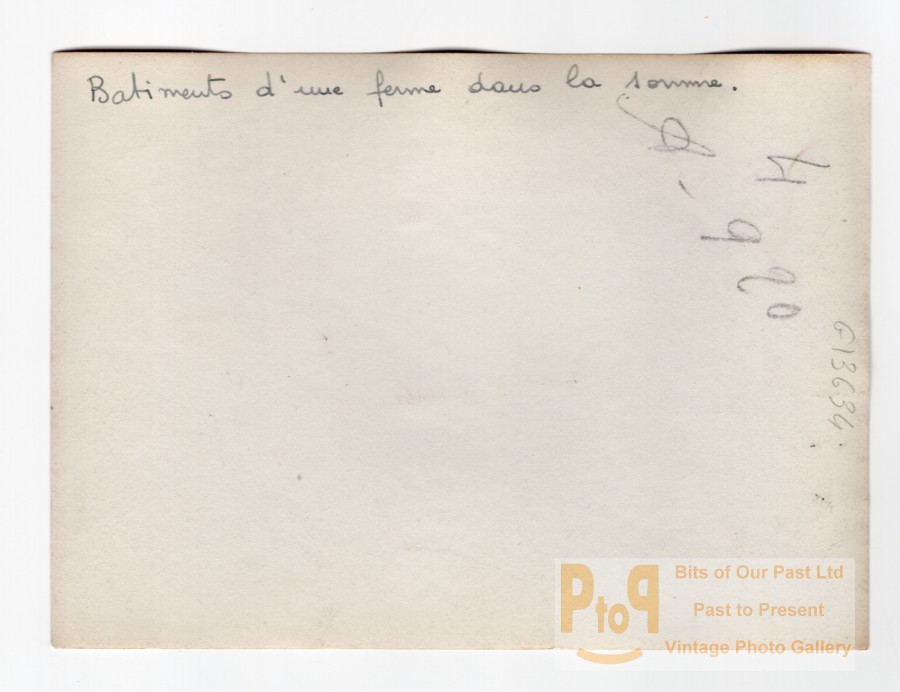 Batiments d'une ferme dans la somme.
4920
G13634
PtoP
Bits of Our Past Ltd
Past to Present
Vintage Photo Gallery